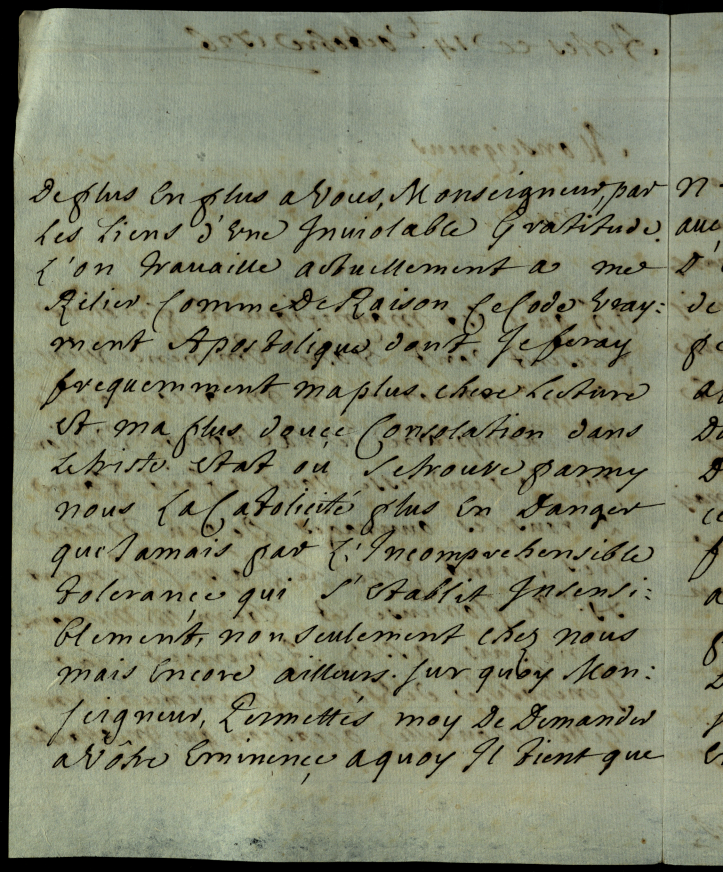 De plus En plus a Vous, Monseigneur, par
Les Liens d'Vne Inuiolable Gratitude.
L'on trauaille actuellement a me
Relier Comme De Raison Ce Code Vray:
ment Apostolique dont Je feray
frequemment ma plus chere Lecture
et ma plus douce Consolation dans
Le triste Etat où Se trouve parmy
nous La Catolicité plus En Danger
que Jamais par L'Incomprehensible
tolerance qui S'Etablit Insensi:
blement, non Seulement chez nous
mais Encore ailleurs. Sur quoy Mon:
Seigneur, Permettés moy De Demander
a Vôtre Eminence a quoy Il tient que